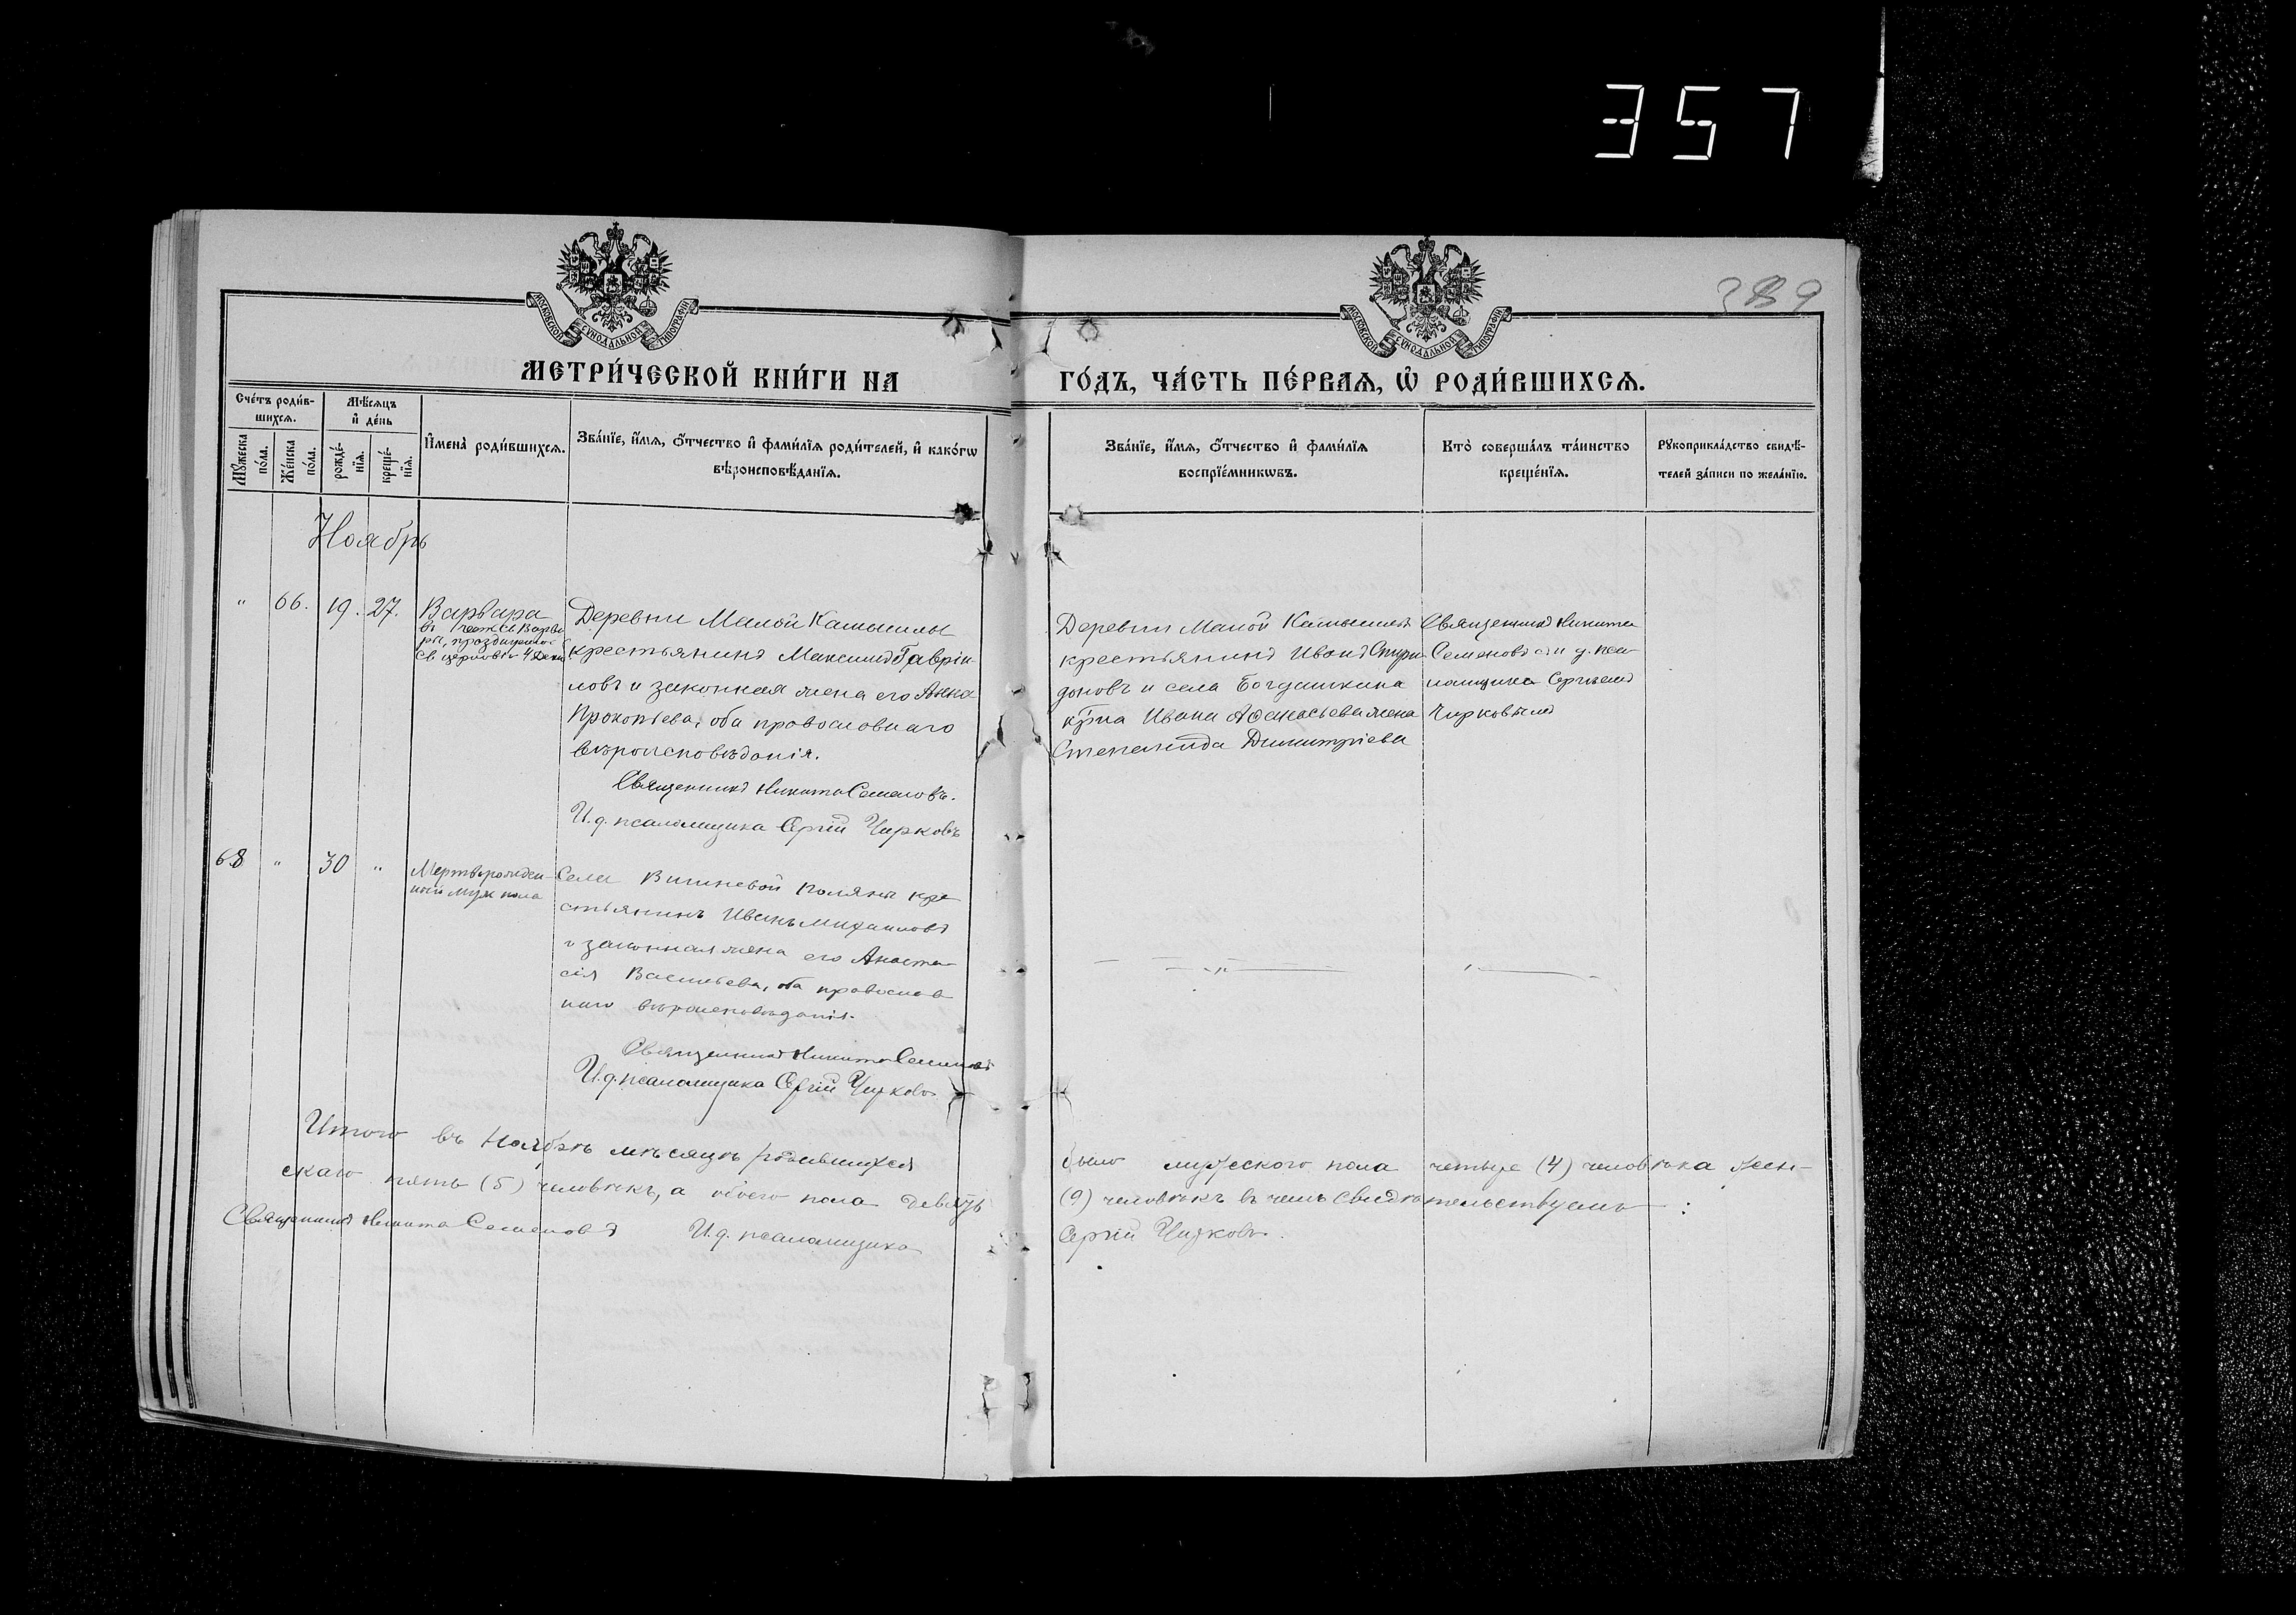 357
389
МОСКОВСКОЙ СѴНОДАЛЬНОЙ ТИПОГРАФІИ
МОСКОВСКОЙ СѴНОДАЛЬНОЙ ТИПОГРАФІИ
МЕТРИ́ЧЕСКОЙ КНИ́ГИ НА̀ ГО́ДЪ, ЧА́СТЬ ПЕ́РВАѦ, Ѽ РОДИ́ВШИХСѦ.
Сче́тъ роди́в-
шихсѧ.
Мѣ́сѧцъ
и҆ де́нь
Мꙋ́жеска
по́ла.
Же́нска
по́ла.
рожде́-
нїѧ.
креще́-
нїѧ.
И҆мена̀ роди́вшихсѧ.
Зва́нїе, и҆́мѧ, ѻ҆́тчество и҆ фами́лїѧ роди́телей, и҆ како́гѡ
вѣроисповѣ́данїѧ.
Зва́нїе, и҆́мѧ, ѻ҆́тчество и҆ фами́лїѧ
воспрїе́мникѡвъ.
Кто̀ соверша́лъ та́инство
креще́нїѧ.
Рꙋкоприкла́дство свидѣ́-
телей за́писи по жела́нїю.
Ноябрь
" 66. 19. 27.
Варвара
въ честь св. Варва
ры, празднуемой
св. церковію 4 Дека
Деревни Малой Камышлы
крестьянинъ Максимъ Гаврiи
ловъ и законная жена его Анна
Прокопьева, оба православнаго
вѣроисповѣданія.
Священникъ Никита Семеновъ.
И. д. псаломщика Сергій Чирковъ
Деревни Малой Камышлы
крестьянинъ Иванъ Спири
доновъ и села Богдашкина
кр-на Ивана Афанасьева жена
Степанида Димитріева
Священникъ Никита
Семеновъ съ и. д. пса
ломщика Сергіемъ
Чирковымъ
68 " 30 "
Мертворожден-
ный муж пола
Села Вишневой Поляны кре
стьянинъ Иванъ Михаиловъ
и законная жена его Анаста-
сія Васильева, оба православ
наго вѣроисповѣданія.
Священникъ Никита Семеновъ
И. д. псаломщика Сергій Чирковъ
Итого въ Ноябрѣ мѣсяцѣ родившихся было мужескаго пола четыре (4) человѣка, жен-
скаго пять (5) человѣкъ, а обоего пола девять (9) человѣкъ въ чемъ свидѣтельствуемъ:
Священникъ Никита Семеновъ И. д. псаломщика Сергій Чирковъ.